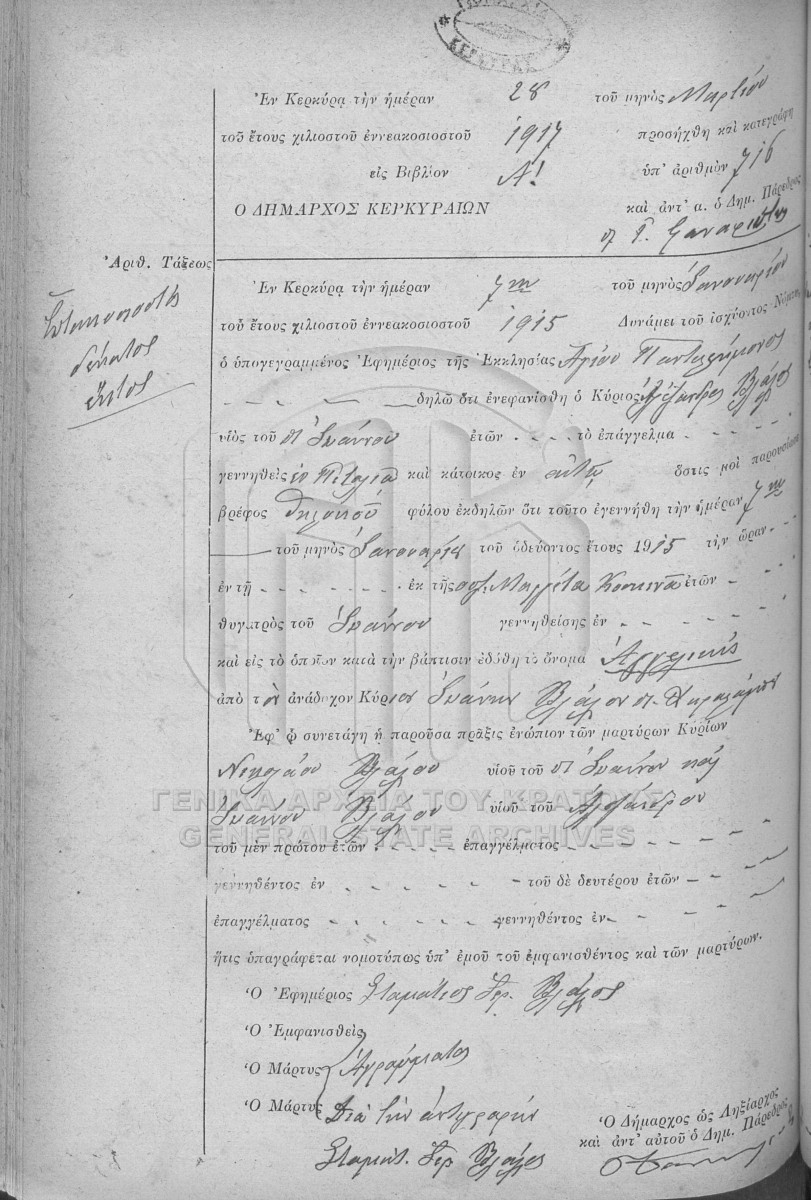 ΚΕΡΚΥΡΑΣ
Ἐν Κερκύρᾳ τὴν ἡμέραν 28 τοῦ μηνὸς Μαρτίου
τοῦ ἔτους χιλιοστοῦ ἐννεακοσιοστοῦ 1917 προσήχθη καὶ κατεγράφη
εἰς Βιβλίον Α! ὑπ' ἀριθμὸν 716
Ο ΔΗΜΑΡΧΟΣ ΚΕΡΚΥΡΑΙΩΝ καὶ ἀντ' α. ὁ Δημ. Πάρεδρος
Ἀριθ. Τάξεως
Ἑπτακοσιοστός
δέκατος
ἕκτος
Ἐν Κερκύρᾳ τὴν ἡμέραν 7ην τοῦ μηνὸς Ἰανουαρίου
τοῦ ἔτους χιλιοστοῦ ἐννεακοσιοστοῦ 1915 Δυνάμει τοῦ ἰσχύοντος Νόμου,
ὁ ὑπογεγραμμένος Ἐφημέριος τῆς Ἐκκλησίας Ἁγίου Παντελεήμονος
δηλῶ ὅτι ἐνεφανίσθη ὁ Κύριος Ἀλέξανδρος Βλάχος
υἱὸς τοῦ Ἰωάννου ἐτῶν τὸ ἐπάγγελμα
γεννηθεὶς ἐν καὶ κάτοικος ἐν αὐτῇ ὅστις μοὶ παρουσίασε
βρέφος θηλυκοῦ φύλου ἐκδηλῶν ὅτι τοῦτο ἐγεννήθη τὴν ἡμέραν 7ην
τοῦ μηνὸς Ἰανουαρίου τοῦ ὁδεύοντος ἔτους 1915 τὴν ὥραν
ἐν τῇ ἐκ τῆς συζ. Μαργέτα ἐτῶν
θυγατρὸς τοῦ Ἰωάννου γεννηθείσης ἐν
καὶ εἰς τὸ ὁποῖον κατὰ τὴν βάπτισιν ἐδόθη τὸ ὄνομα Ἀγγελικῆς
ἀπὸ τὸν ἀνάδοχον Κύριον Ἰωάννην Βλάχον
Ἐφ' ᾧ συνετάγη ἡ παροῦσα πρᾶξις ἐνώπιον τῶν μαρτύρων Κυρίων
Νικολάου Βλάχου υἱοῦ τοῦ Ἰωάννου καὶ
Ἰωάννου Βλάχου υἱοῦ τοῦ Ἀλεξάνδρου
ΓΕΝΙΚΑ ΑΡΧΕΙΑ ΤΟΥ ΚΡΑΤΟΥΣ
GENERAL STATE ARCHIVES
τοῦ μὲν πρώτου ἐτῶν ἐπαγγέλματος
γεννηθέντος ἐν τοῦ δὲ δευτέρου ἐτῶν
ἐπαγγέλματος γεννηθέντος ἐν
ἥτις ὑπαγράφεται νομοτύπως ὑπ' ἐμοῦ τοῦ ἐμφανισθέντος καὶ τῶν μαρτύρων.
Ὁ Ἐφημέριος Σταμάτιος Ἱερ. Βλάχος
Ὁ Ἐμφανισθεὶς
Ὁ Μάρτυς Ἀγράμματοι
Ὁ Μάρτυς Διὰ τὴν ἀντιγραφήν
Σταματ. Ἱερ. Βλάχος
Ὁ Δήμαρχος ὡς Ληξίαρχος
καὶ ἀντ' αὐτοῦ ὁ Δημ. Πάρεδρος